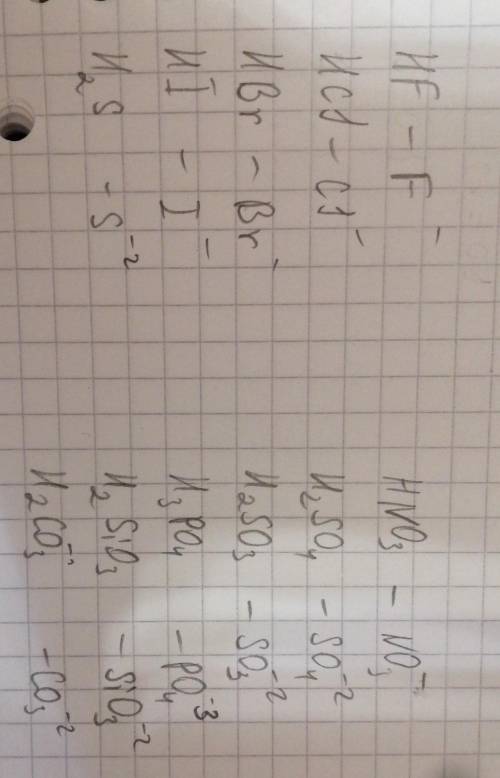 HF - F⁻
HCl - Cl⁻
HBr - Br⁻
HI - I⁻
H₂S - S⁻²
HNO₃ - NO₃⁻
H₂SO₄ - SO₄⁻²
H₂SO₃ - SO₃⁻²
H₃PO₄ - PO₄⁻³
H₂SiO₃ - SiO₃⁻²
H₂CO₃ - CO₃⁻²